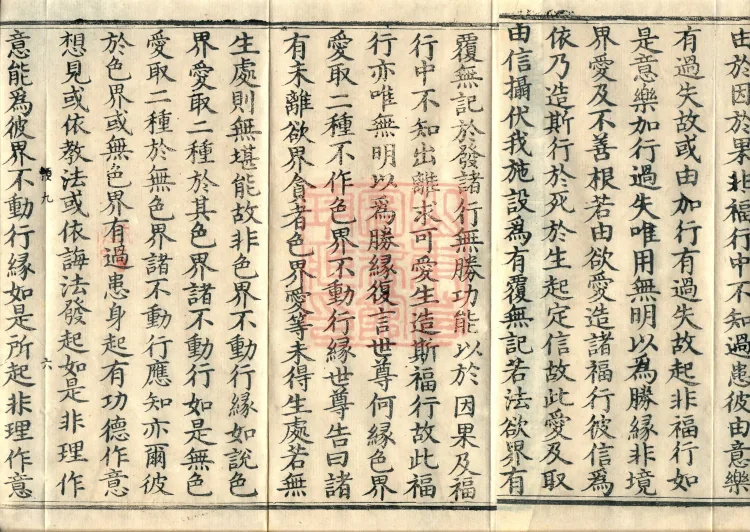 由於因於果非福行中不知過患彼由意樂
有過失故或由加行有過失故起非福行如
是意樂加行過失唯用無明以爲勝緣非境
界愛及不善根若由欲愛造諸福行彼信爲
依乃造斯行於死於生起定信故此愛及取
由信攝伏我施設爲有覆無記若法欲界有
覆無記於發諸行無勝功能以於因果及福
行中不知出離求可愛生造斯福行故此福
行亦唯無明以爲勝緣復言世尊何緣色界
愛取二種不作色界不動行緣世尊告曰諸
有未離欲界貪者色界愛等未得生處若無
生處則無堪能故非色界不動行緣如說色
界愛取二種於其色界諸不動行如是無色
愛取二種於無色界諸不動行應知亦爾彼
於色界或無色界有過患身起有功德作意
想見或依教法或依誨法發起如是非理作
九 六
意能爲彼界不動行緣如是所起非理作意